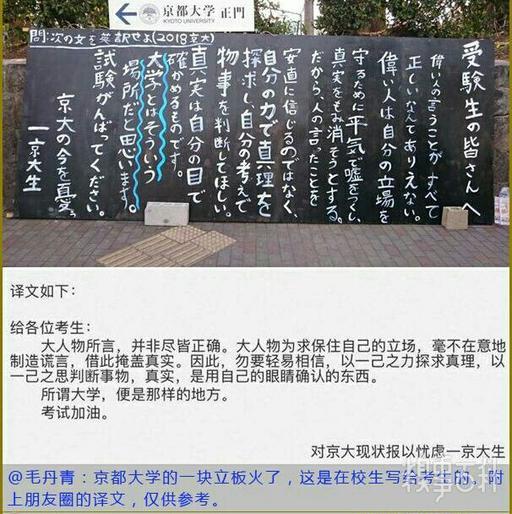 京都大学 正門
KYOTO UNIVERSITY
問:次の文を英訳せよ(2018京大)
受験生の皆さんへ
偉い人の言うことが、すべて
正しいなんてありえない。
偉い人は自分の立場を
守るために平気で嘘をつくし、
真実をもみ消そうとする。
だから、人の言ったことを
安直に信じるのではなく、
自分の力で真理を
探求し、自分の考えで
物事を判断してほしい。
真実は自分の目で
確かめるものです。
大学とはそういう
場所だと思います。
試験がんばってください。
京大の今を憂う
一京大生
译文如下：
给各位考生：
大人物所言，并非尽皆正确。大人物为求保住自己的立场，毫不在意地
制造谎言，借此掩盖真实。因此，勿要轻易相信，以一己之力探求真理，以
一己之思判断事物，真实，是用自己的眼睛确认的东西。
所谓大学，便是那样的地方。
考试加油。
对京大现状报以忧虑一京大生
@毛丹青：京都大学的一块立板火了，这是在校生写给考生的。附
上朋友圈的译文，仅供参考。